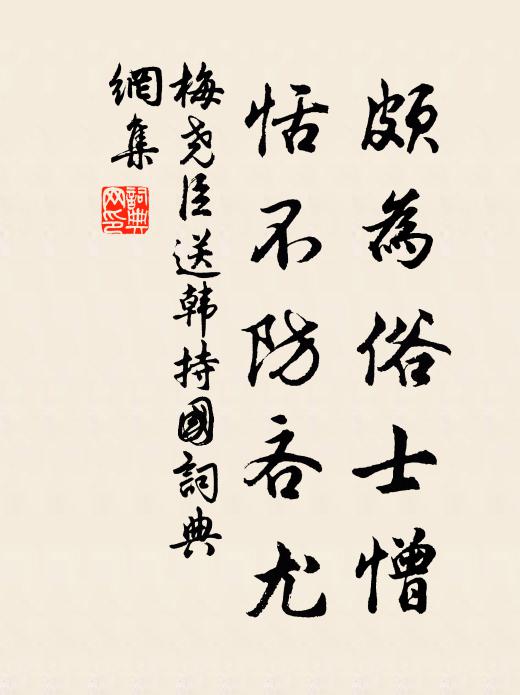 頗為俗士憎
恬不防吝尤
梅尧臣送韩持國詞典
網集
詞典
网印